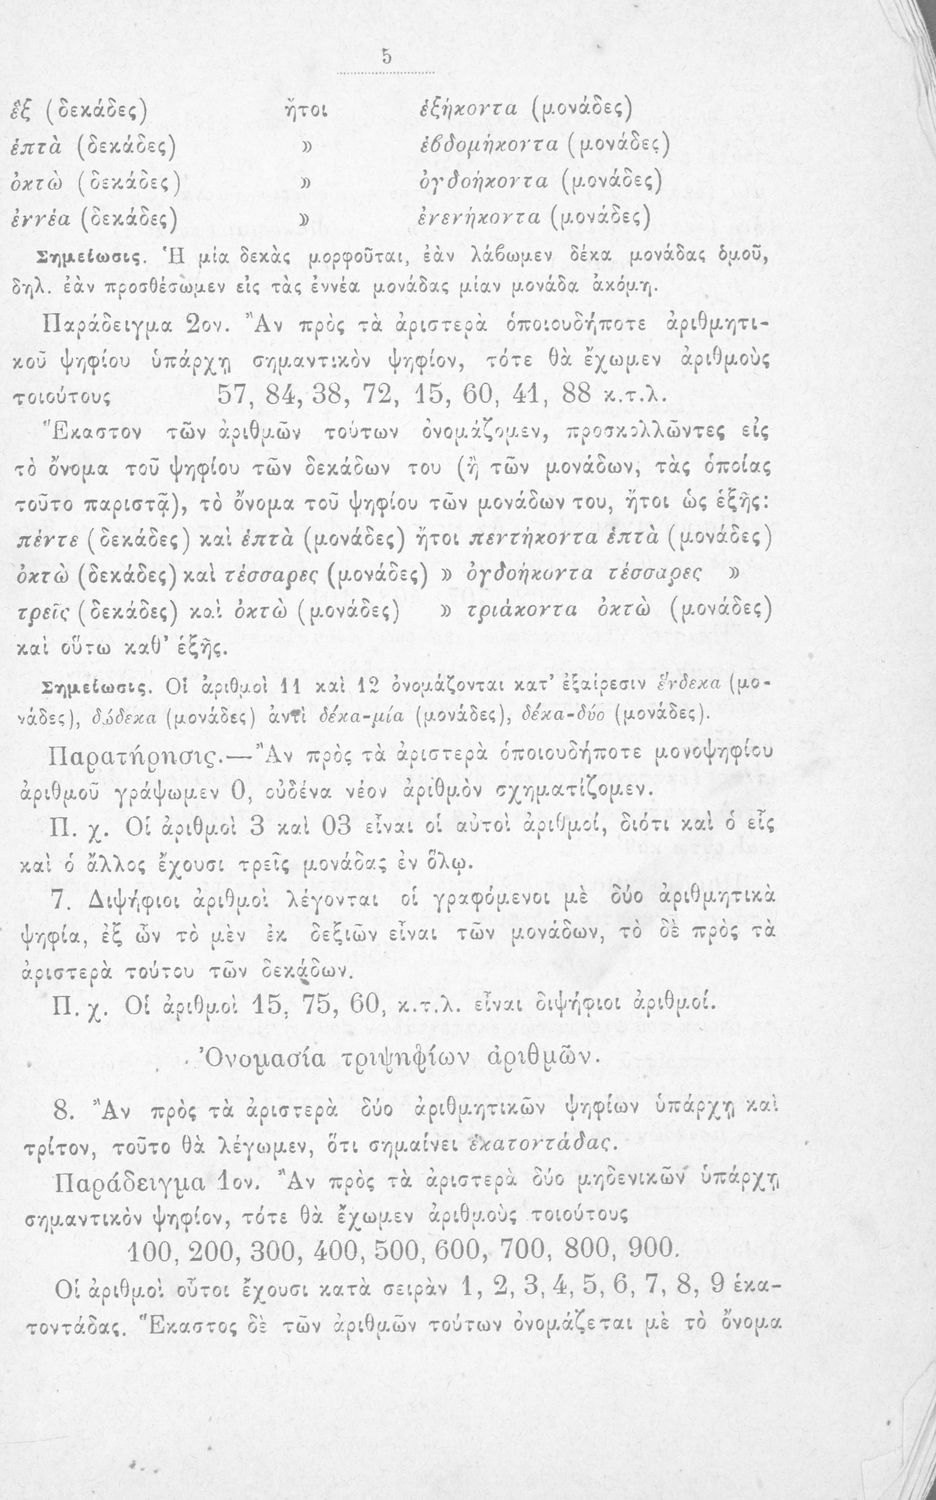 5
ἓξ (δεκάδες) ἤτοι ἑξήκοντα (μονάδες)
ἑπτὰ (δεκάδες) » ἑβδομήκοντα (μονάδες)
ὀκτὼ (δεκάδες) » ὀγδοήκοντα (μονάδες)
ἐννέα (δεκάδες) » ἐνενήκοντα (μονάδες)
Σημείωσις. Ἡ μία δεκὰς μορφοῦται, ἐὰν λάβωμεν δέκα μονάδας ὁμοῦ,
δηλ. ἐὰν προσθέσωμεν εἰς τὰς ἐννέα μονάδας μίαν μονάδα ἀκόμη.
Παράδειγμα 2ον. Ἂν πρὸς τὰ ἀριστερὰ ὁποιουδήποτε ἀριθμητι-
κοῦ ψηφίου ὑπάρχῃ σημαντικὸν ψηφίον, τότε θὰ ἔχωμεν ἀριθμοὺς
τοιούτους 57, 84, 38, 72, 15, 60, 41, 88 κ.τ.λ.
Ἕκαστον τῶν ἀριθμῶν τούτων ὀνομάζομεν, προσκολλῶντες εἰς
τὸ ὄνομα τοῦ ψηφίου τῶν δεκάδων του (ἢ τῶν μονάδων, τὰς ὁποίας
τοῦτο παριστᾷ), τὸ ὄνομα τοῦ ψηφίου τῶν μονάδων του, ἤτοι ὡς ἑξῆς:
πέντε (δεκάδες) καὶ ἑπτὰ (μονάδες) ἤτοι πεντήκοντα ἑπτὰ (μονάδες)
ὀκτὼ (δεκάδες) καὶ τέσσαρες (μονάδες) » ὀγδοήκοντα τέσσαρες »
τρεῖς (δεκάδες) καὶ ὀκτὼ (μονάδες) » τριάκοντα ὀκτὼ (μονάδες)
καὶ οὕτω καθ' ἑξῆς.
Σημείωσις. Οἱ ἀριθμοὶ 11 καὶ 12 ὀνομάζονται κατ' ἐξαίρεσιν ἕνδεκα (μο-
νάδες), δώδεκα (μονάδες) ἀντὶ δέκα-μία (μονάδες), δέκα-δύο (μονάδες).
Παρατήρησις.—Ἂν πρὸς τὰ ἀριστερὰ ὁποιουδήποτε μονοψηφίου
ἀριθμοῦ γράψωμεν 0, οὐδένα νέον ἀριθμὸν σχηματίζομεν.
Π. χ. Οἱ ἀριθμοὶ 3 καὶ 03 εἶναι οἱ αὐτοὶ ἀριθμοί, διότι καὶ ὁ εἷς
καὶ ὁ ἄλλος ἔχουσι τρεῖς μονάδας ἐν ὅλῳ.
7. Διψήφιοι ἀριθμοὶ λέγονται οἱ γραφόμενοι μὲ δύο ἀριθμητικὰ
ψηφία, ἐξ ὧν τὸ μὲν ἐκ δεξιῶν εἶναι τῶν μονάδων, τὸ δὲ πρὸς τὰ
ἀριστερὰ τούτου τῶν δεκάδων.
Π. χ. Οἱ ἀριθμοὶ 15, 75, 60, κ.τ.λ. εἶναι διψήφιοι ἀριθμοί.
Ὀνομασία τριψηφίων ἀριθμῶν.
8. Ἂν πρὸς τὰ ἀριστερὰ δύο ἀριθμητικῶν ψηφίων ὑπάρχῃ καὶ
τρίτον, τοῦτο θὰ λέγωμεν, ὅτι σημαίνει ἑκατοντάδας.
Παράδειγμα 1ον. Ἂν πρὸς τὰ ἀριστερὰ δύο μηδενικῶν ὑπάρχῃ
σημαντικὸν ψηφίον, τότε θὰ ἔχωμεν ἀριθμοὺς τοιούτους
100, 200, 300, 400, 500, 600, 700, 800, 900.
Οἱ ἀριθμοὶ οὗτοι ἔχουσι κατὰ σειρὰν 1, 2, 3, 4, 5, 6, 7, 8, 9 ἑκα-
τοντάδας. Ἕκαστος δὲ τῶν ἀριθμῶν τούτων ὀνομάζεται μὲ τὸ ὄνομα